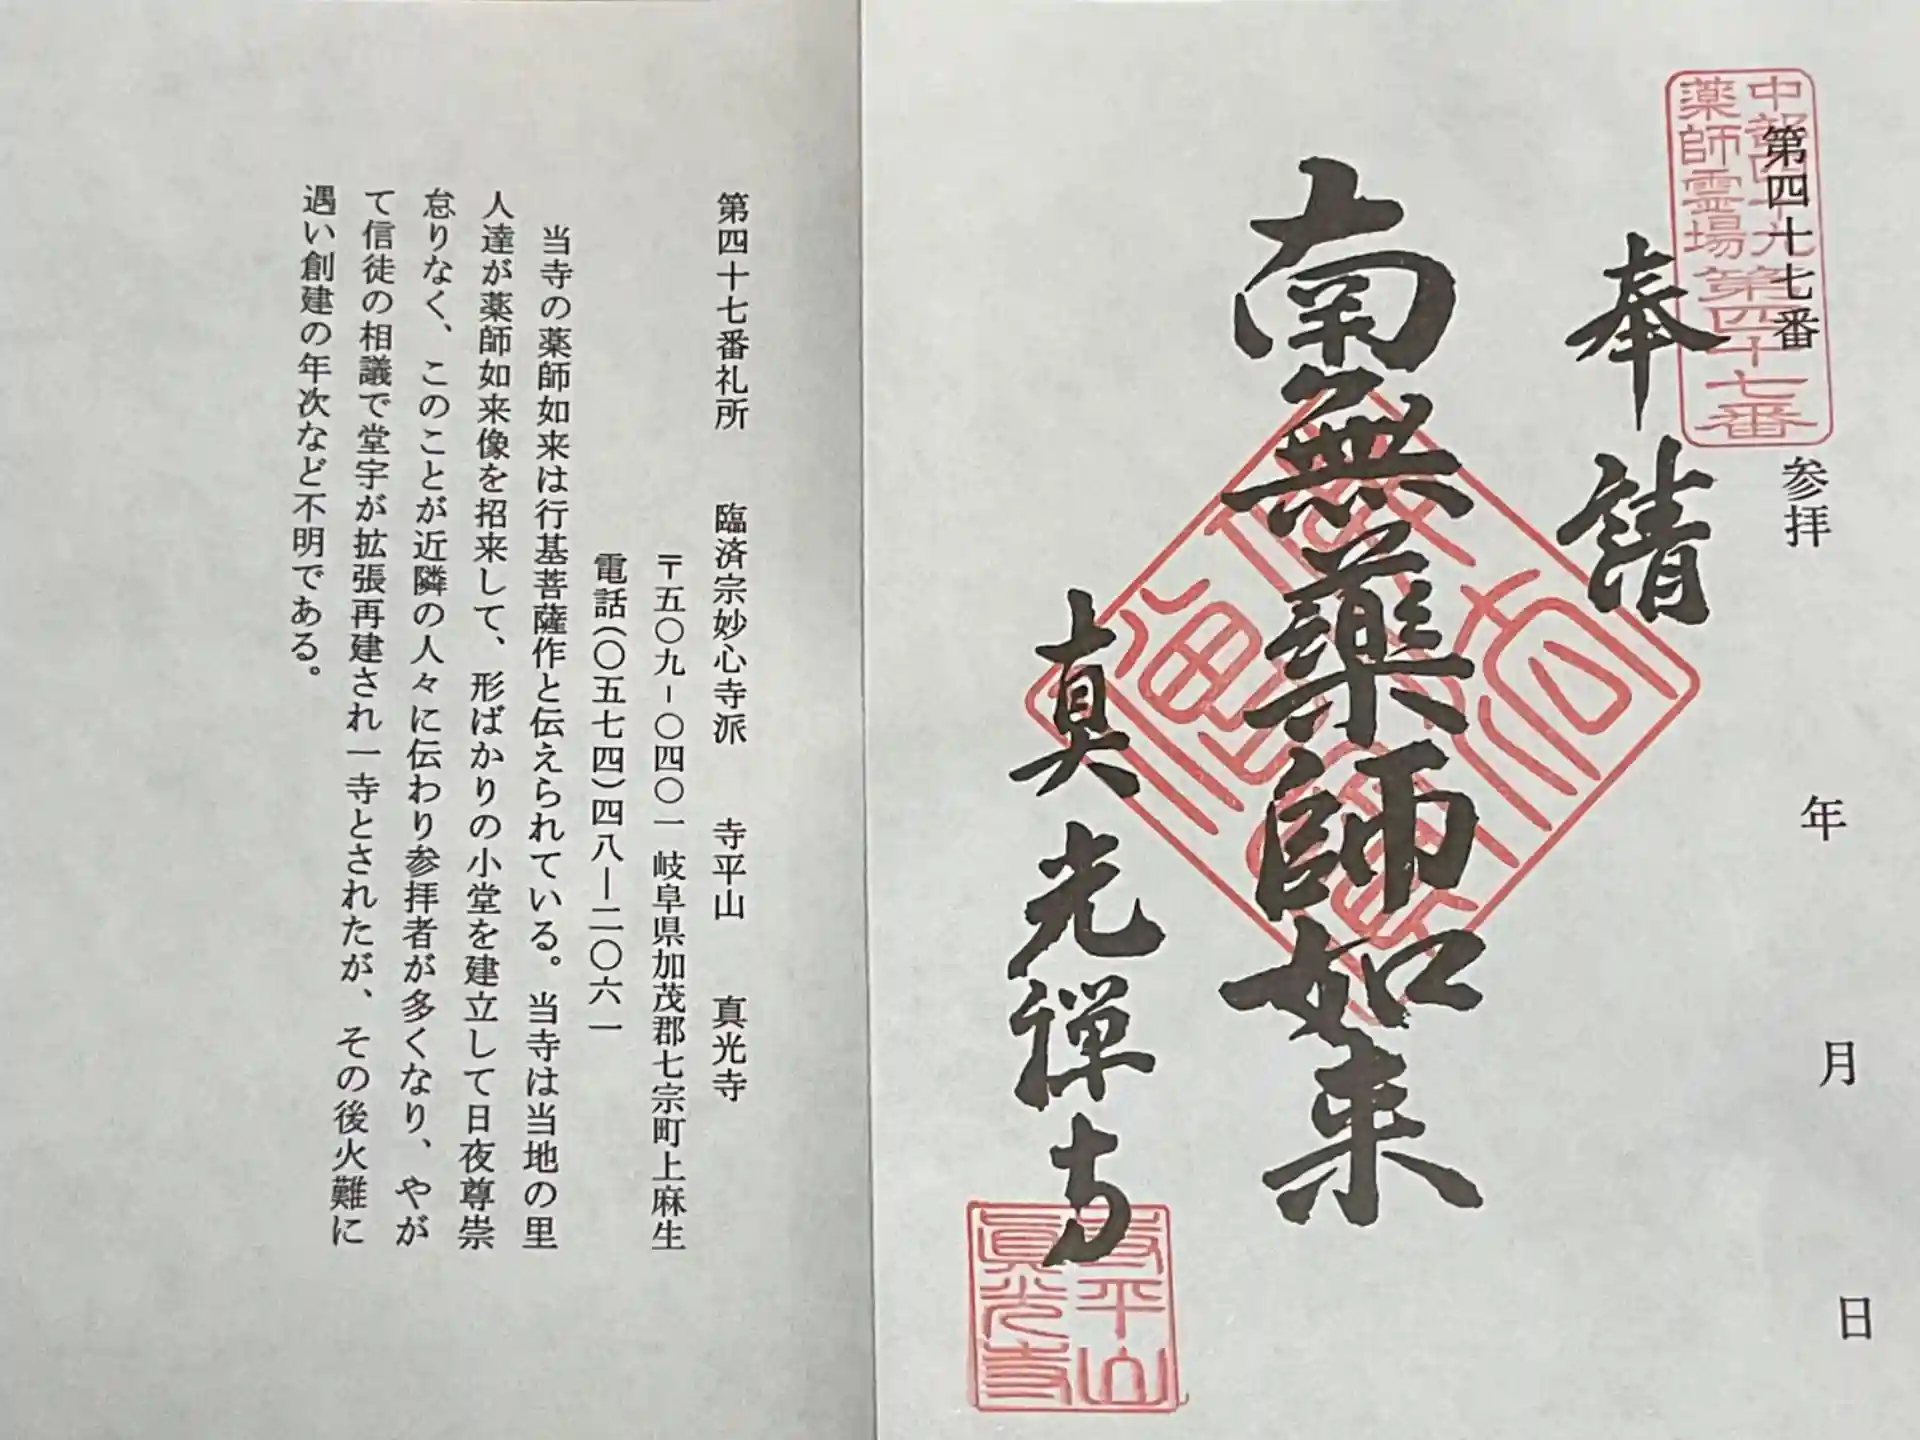 中部四十九
薬師霊場第四十七番
第四十七番
参拝
年
月
日
奉請
南無薬師如来
真光禅寺
寺平山
眞光寺
第四十七番礼所 臨済宗妙心寺派 寺平山 真光寺
〒五〇九-〇四〇一 岐阜県加茂郡七宗町上麻生
電話(〇五七四)四八―二〇六一
当寺の薬師如来は行基菩薩作と伝えられている。当寺は当地の里
人達が薬師如来像を招来して、形ばかりの小堂を建立して日夜尊崇
怠りなく、このことが近隣の人々に伝わり参拝者が多くなり、やが
て信徒の相議で堂宇が拡張再建され一寺とされたが、その後火難に
遇い創建の年次など不明である。